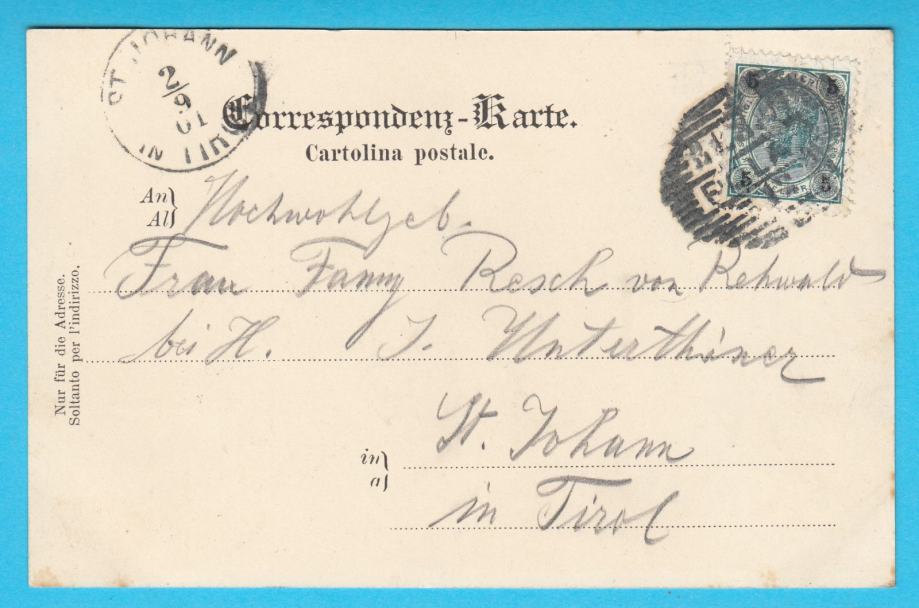 ST. JOHANN
2/9
01
IN TIR
Correspondenz-Karte.
Cartolina postale.
5 5
5 5
An
Al
Hochwohlgeb.
Frau Fanny Resch von Rehwald
bei H. J. Unterthiner
in
a
St. Johann
in Tirol
Nur für die Adresse.
Soltanto per l'indirizzo.